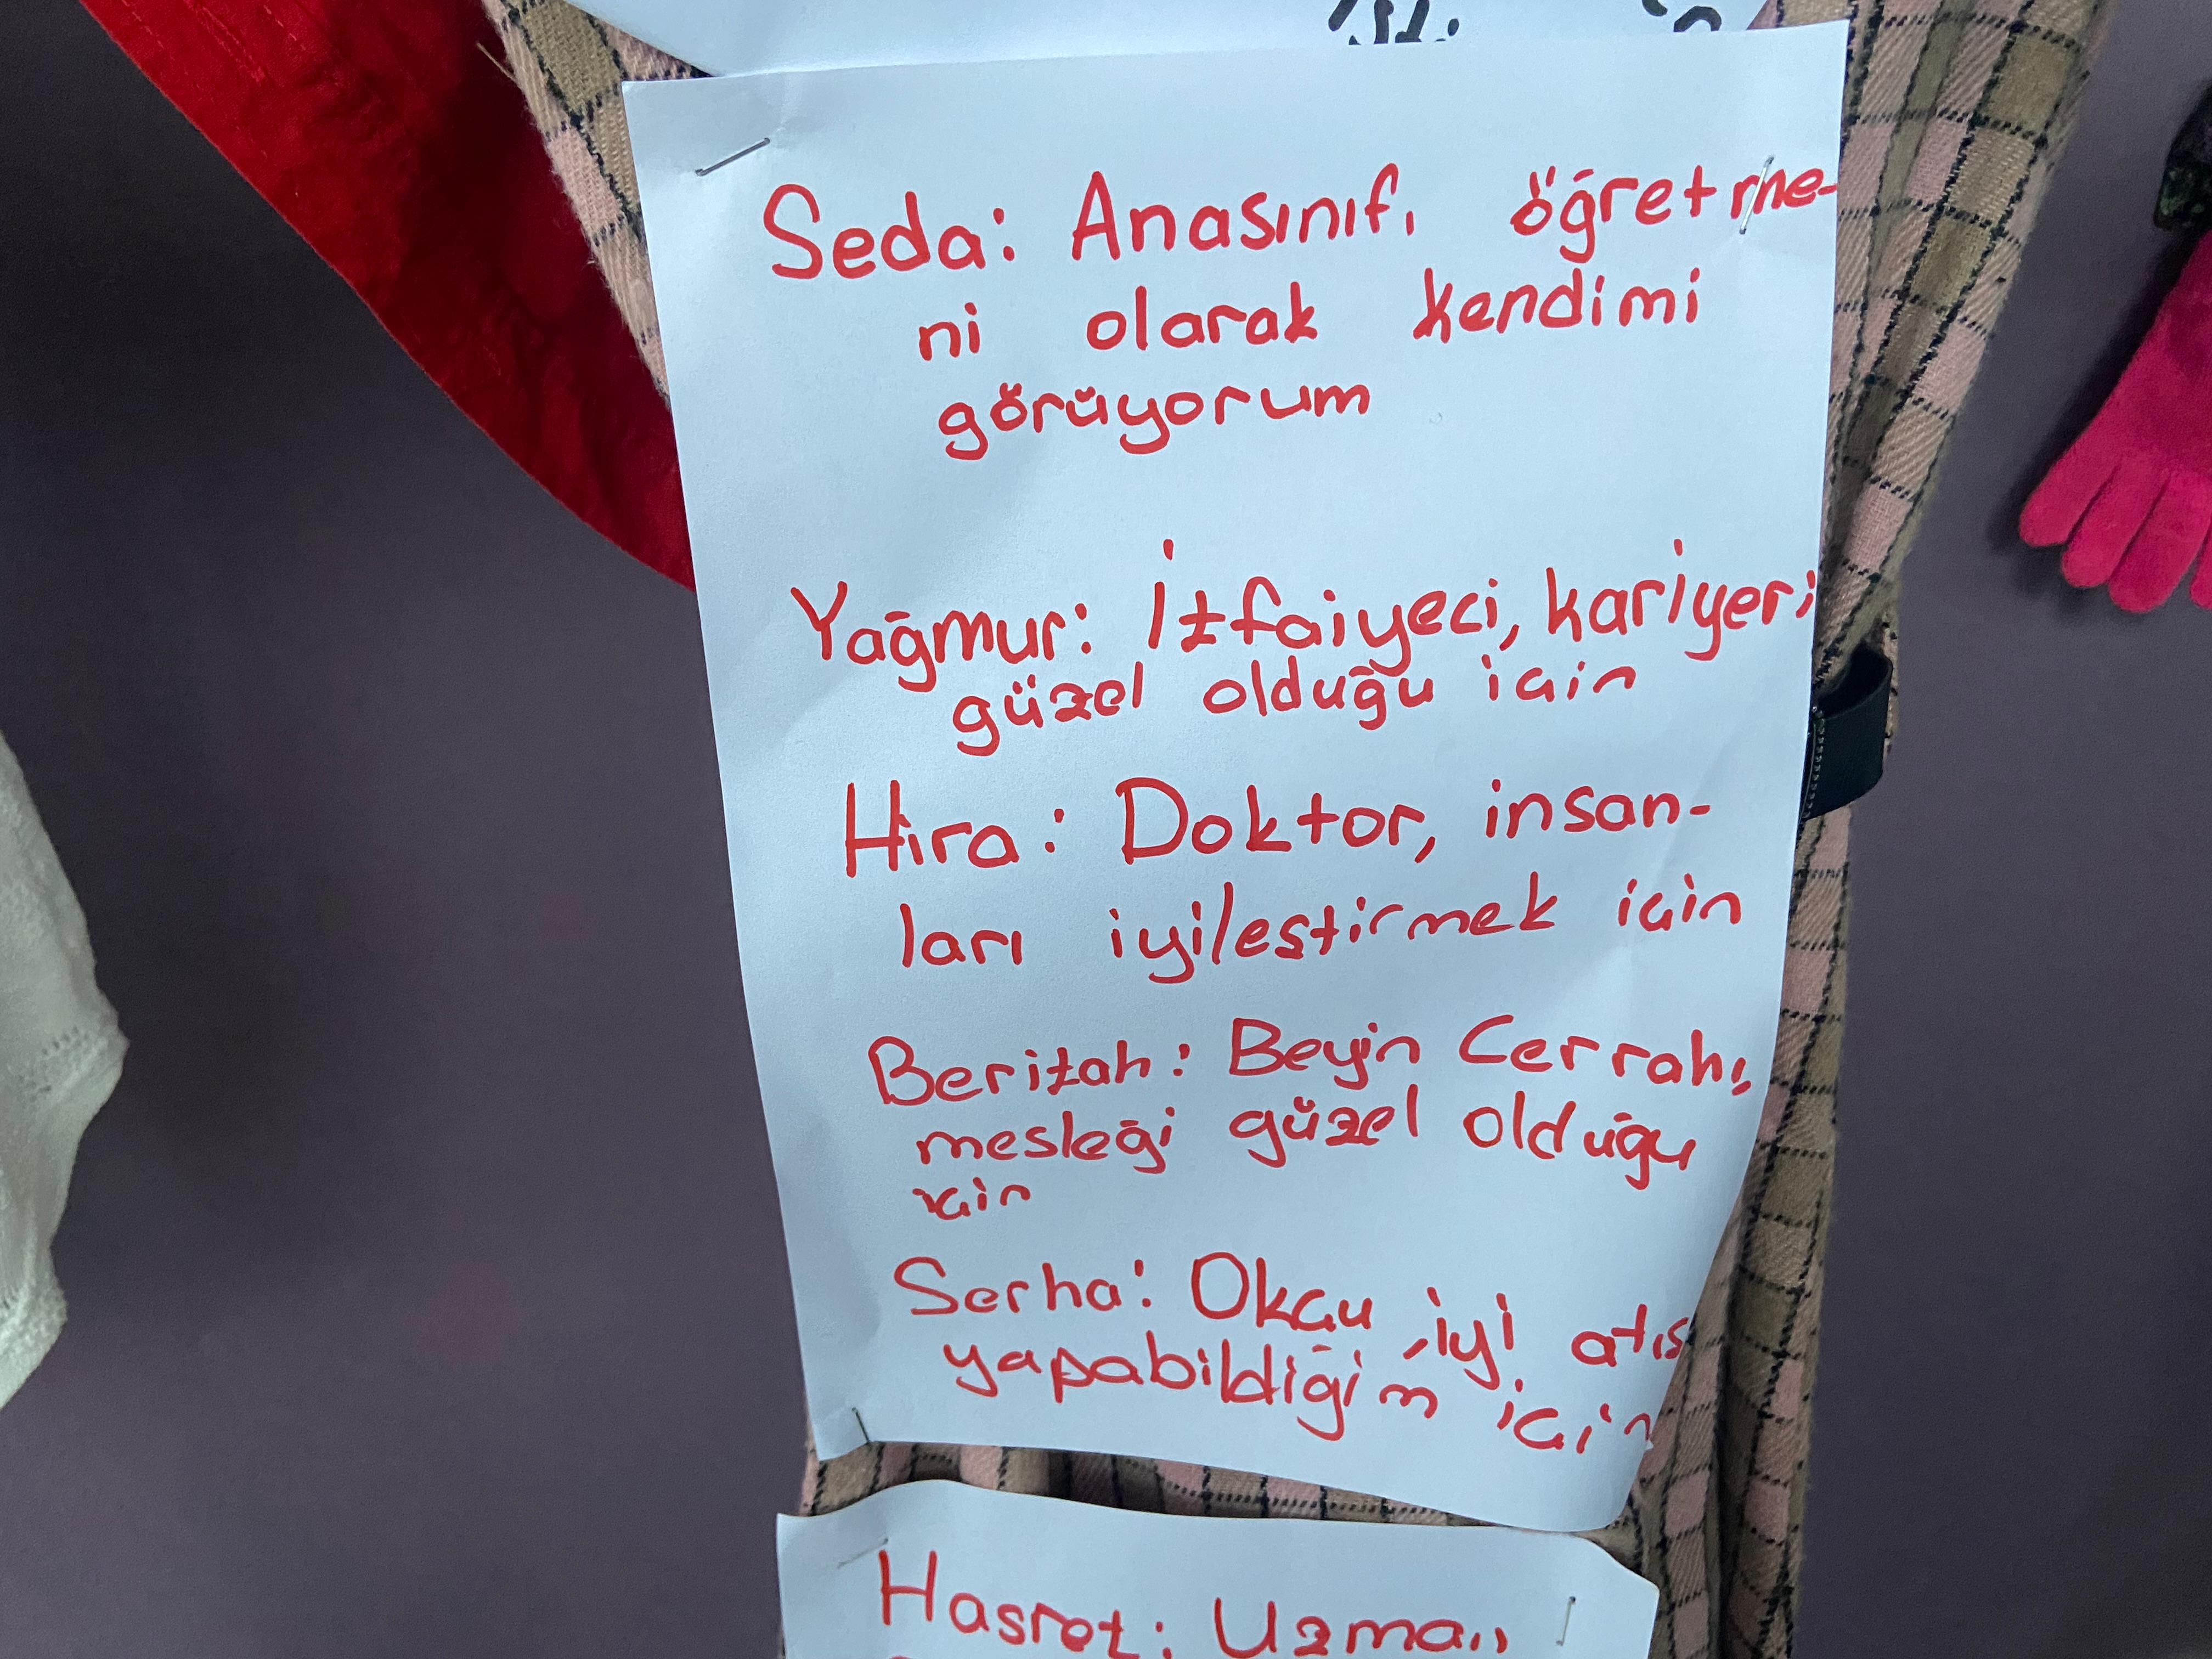 Seda: Anasınıfı öğretme-
ni olarak kendimi
görüyorum
Yağmur: İtfaiyeci, kariyeri
güzel olduğu için
Hira: Doktor, insan-
ları iyileştirmek için
Beritan: Beyin Cerrahı,
mesleği güzel olduğu
için
Serha: Okçu, iyi atış
yapabildiğim için
Hasret: Uzman